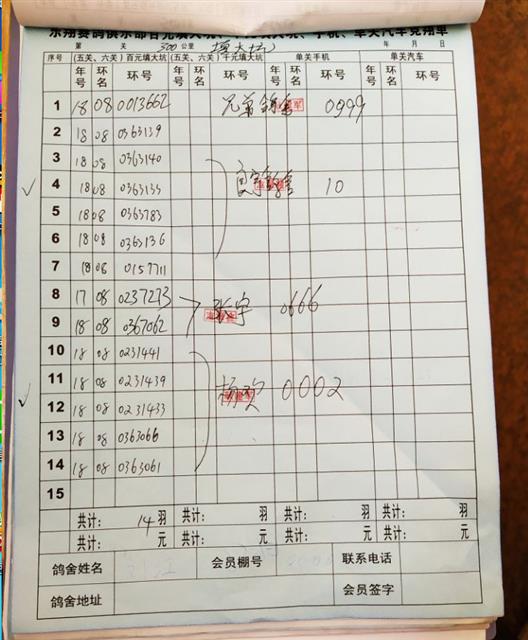 东翔赛鸽俱乐部百元填大坑、
第 关 300公里 填大坑
序号 (五关、六关)百元填大坑 (五关、六关)千元填大坑 单关手机 单关汽车
年号 环名 环号 年号 环名 环号 年号 环名 环号 年号 环名 环号
1 18 08 0013662 兄弟鸽舍 0999
2 18 08 0363139
3 18 08 0363140
4 18 08 0363135 10
5 18 08 0363783
6 18 08 0363136
7 18 08 0157711
8 17 08 0237273 张宇 0666
9 18 08 0367062
10 18 08 0231441
11 18 08 0231439 杨欢 0002
12 18 08 0231433
13 18 08 0363066
14 18 08 0363061
15
共计: 14 羽 共计: 羽 共计: 羽 共计: 羽
共计: 元 共计: 元 共计: 元 共计: 元
鸽舍姓名 会员棚号 联系电话
鸽舍地址 会员签字